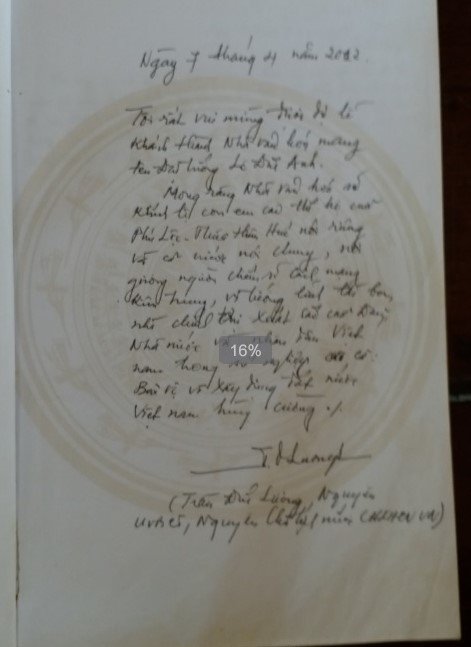 Ngày 7 tháng 4 năm 2012.
Tôi rất vui mừng được dự lễ
Khánh thành Nhà văn hóa mang
tên Đại tướng Lê Đức Anh.
Mong rằng Nhà văn hóa sẽ
khích lệ con em các thế hệ của
Phú Lộc - Thừa Thiên Huế nói riêng
và cả nước nói chung, noi
gương người chiến sĩ Cách mạng
Kiên trung, vị tướng
Nhà nước và nhân dân Việt
16%
nam trong sự nghiệp
Bảo vệ và Xây dựng đất nước
Việt nam hùng cường ./.
(Trần Đức Lương, Nguyên
UVBCT, Nguyên Chủ tịch nước CHXHCN VN)